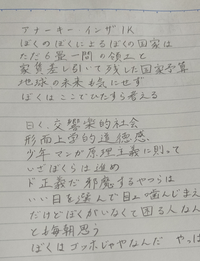 アナーキー イン ザ 1K
ぼくのぼくによるぼくの国家は
ただ6畳一間の領土と
家賃差し引いて残した国家予算
地球の未来も気にせず
ぼくはここでひたすら考える
曰く、交響楽的社会
形而上学的道徳感
少年マンガ原理主義に則って
いざぼくらは進め
ド正義だ 邪魔するやつらは
いい目を選んで目 噛んじまえ
だけどぼくがいなくて困る人なん
とも毎朝思う
ぼくはゴッホじゃやなんだ やっぱ